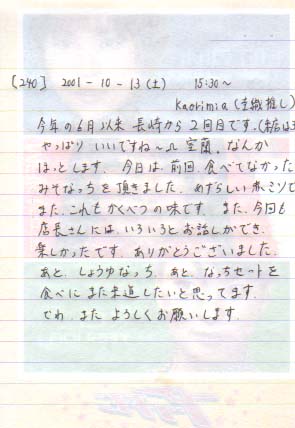 [240] 2001-10-13(土) 15:30〜
Kaorimia(圭織推し)
今年の6月以来 長崎から2回目です。(来店は
やっぱり いいですね〜。室蘭。なんか
ほっとします。今日は、前回、食べてなかった
みそなっちを頂きました。めずらしい赤ミソで
また、これもかくべつの味です。また、今回も
店長さんには、いろいろとお話しができ、
楽しかったです。ありがとうございました。
あと、しょうゆなっち。あと、なっちセットを
食べに また来道したいと思ってます。
でわ、また よろしくお願いします。